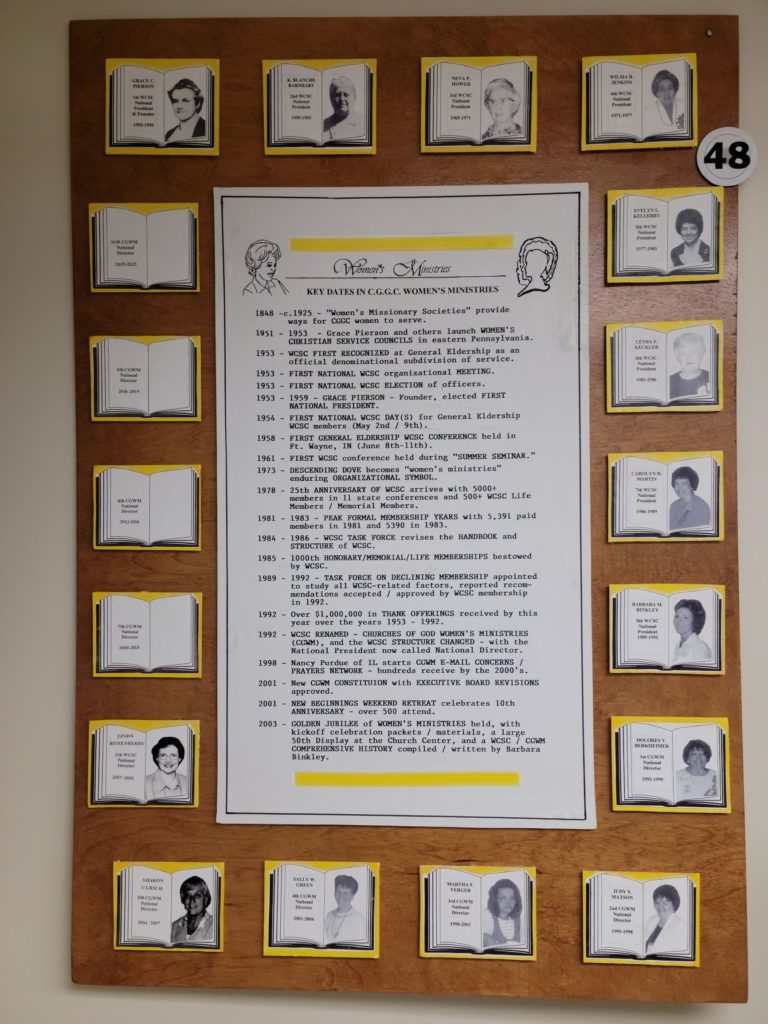 GRACE C.
PIERSON
1st WCSC
National
President
& Founder
1953-1959
K. BLANCHE
BARNHART
2nd WCSC
National
President
1959-1965
NEVA P.
HOWER
3rd WCSC
National
President
1965-1971
WILMA H.
JENKINS
4th WCSC
National
President
1971-1977
48
EVELYN L.
KELLERBY
5th WCSC
National
President
1977-1983
LETHA E.
KECKLER
6th WCSC
National
President
1983-1986
CAROLYN B.
MARTIN
7th WCSC
National
President
1986-1989
BARBARA M.
BINKLEY
8th WCSC
National
President
1989-1992
DOLORES V.
BERKHEIMER
1st CGWM
National
Director
1992-1995
JUDY S.
MATSON
2nd CGWM
National
Director
1995-1998
MARTHA F.
YERGER
3rd CGWM
National
Director
1998-2001
SALLY W.
GREEN
4th CGWM
National
Director
2001-2004
SHARON
ULRICH
5th CGWM
National
Director
2004 - 2007
LINDA
ROSENBERRY
6th WCSC
National
Director
2007-2010
7th CGWM
National
Director
2010-2013
8th CGWM
National
Director
2013-2016
9th CGWM
National
Director
2016-2019
10th CGWM
National
Director
2019-2022
Women's Ministries
KEY DATES IN C.G.G.C. WOMEN'S MINISTRIES
1848 -c.1925 - "Women's Missionary Societies" provide
ways for CGGC women to serve.
1951 - 1953 - Grace Pierson and others launch WOMEN'S
CHRISTIAN SERVICE COUNCILS in eastern Pennsylvania.
1953 - WCSC FIRST RECOGNIZED at General Eldership as an
official denominational subdivision of service.
1953 - FIRST NATIONAL WCSC organizational MEETING.
1953 - FIRST NATIONAL WCSC ELECTION of officers.
1953 - 1959 - GRACE PIERSON - Founder, elected FIRST
NATIONAL PRESIDENT.
1954 - FIRST NATIONAL WCSC DAY(S) for General Eldership
WCSC members (May 2nd / 9th).
1958 - FIRST GENERAL ELDERSHIP WCSC CONFERENCE held in
Ft. Wayne, IN (June 8th-11th).
1961 - FIRST WCSC conference held during "SUMMER SEMINAR."
1973 - DESCENDING DOVE becomes "women's ministries"
enduring ORGANIZATIONAL SYMBOL.
1978 - 25th ANNIVERSARY OF WCSC arrives with 5000+
members in 11 state conferences and 500+ WCSC Life
Members / Memorial Members.
1981 - 1983 - PEAK FORMAL MEMBERSHIP YEARS with 5,391 paid
members in 1981 and 5390 in 1983.
1984 - 1986 - WCSC TASK FORCE revises the HANDBOOK and
STRUCTURE of WCSC.
1985 - 1000th HONORARY/MEMORIAL/LIFE MEMBERSHIPS bestowed
by WCSC.
1989 - 1992 - TASK FORCE ON DECLINING MEMBERSHIP appointed
to study all WCSC-related factors, reported recom-
mendations accepted / approved by WCSC membership
in 1992.
1992 - Over $1,000,000 in THANK OFFERINGS received by this
year over the years 1953 - 1992.
1992 - WCSC RENAMED - CHURCHES OF GOD WOMEN'S MINISTRIES
(CGWM), and the WCSC STRUCTURE CHANGED - with the
National President now called National Director.
1998 - Nancy Purdue of IL starts CGWM E-MAIL CONCERNS /
PRAYERS NETWORK - hundreds receive by the 2000's.
2001 - New CGWM CONSTITUION with EXECUTIVE BOARD REVISIONS
approved.
2001 - NEW BEGINNINGS WEEKEND RETREAT celebrates 10th
ANNIVERSARY - over 500 attend.
2003 - GOLDEN JUBILEE of WOMEN'S MINISTRIES held, with
kickoff celebration packets / materials, a large
50th Display at the Church Center, and a WCSC / CGWM
COMPREHENSIVE HISTORY compiled / written by Barbara
Binkley.